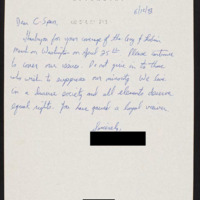 5/19/93
Dear C-Span,
Thank you for your coverage of the Gay & Lesbian
March on Washington on April 25th. Please continue
to cover our issues. Do not give in to those
who wish to suppress our minority. We live
in a diverse society and all elements deserve
equal rights. You have proved a loyal
Sincerely,